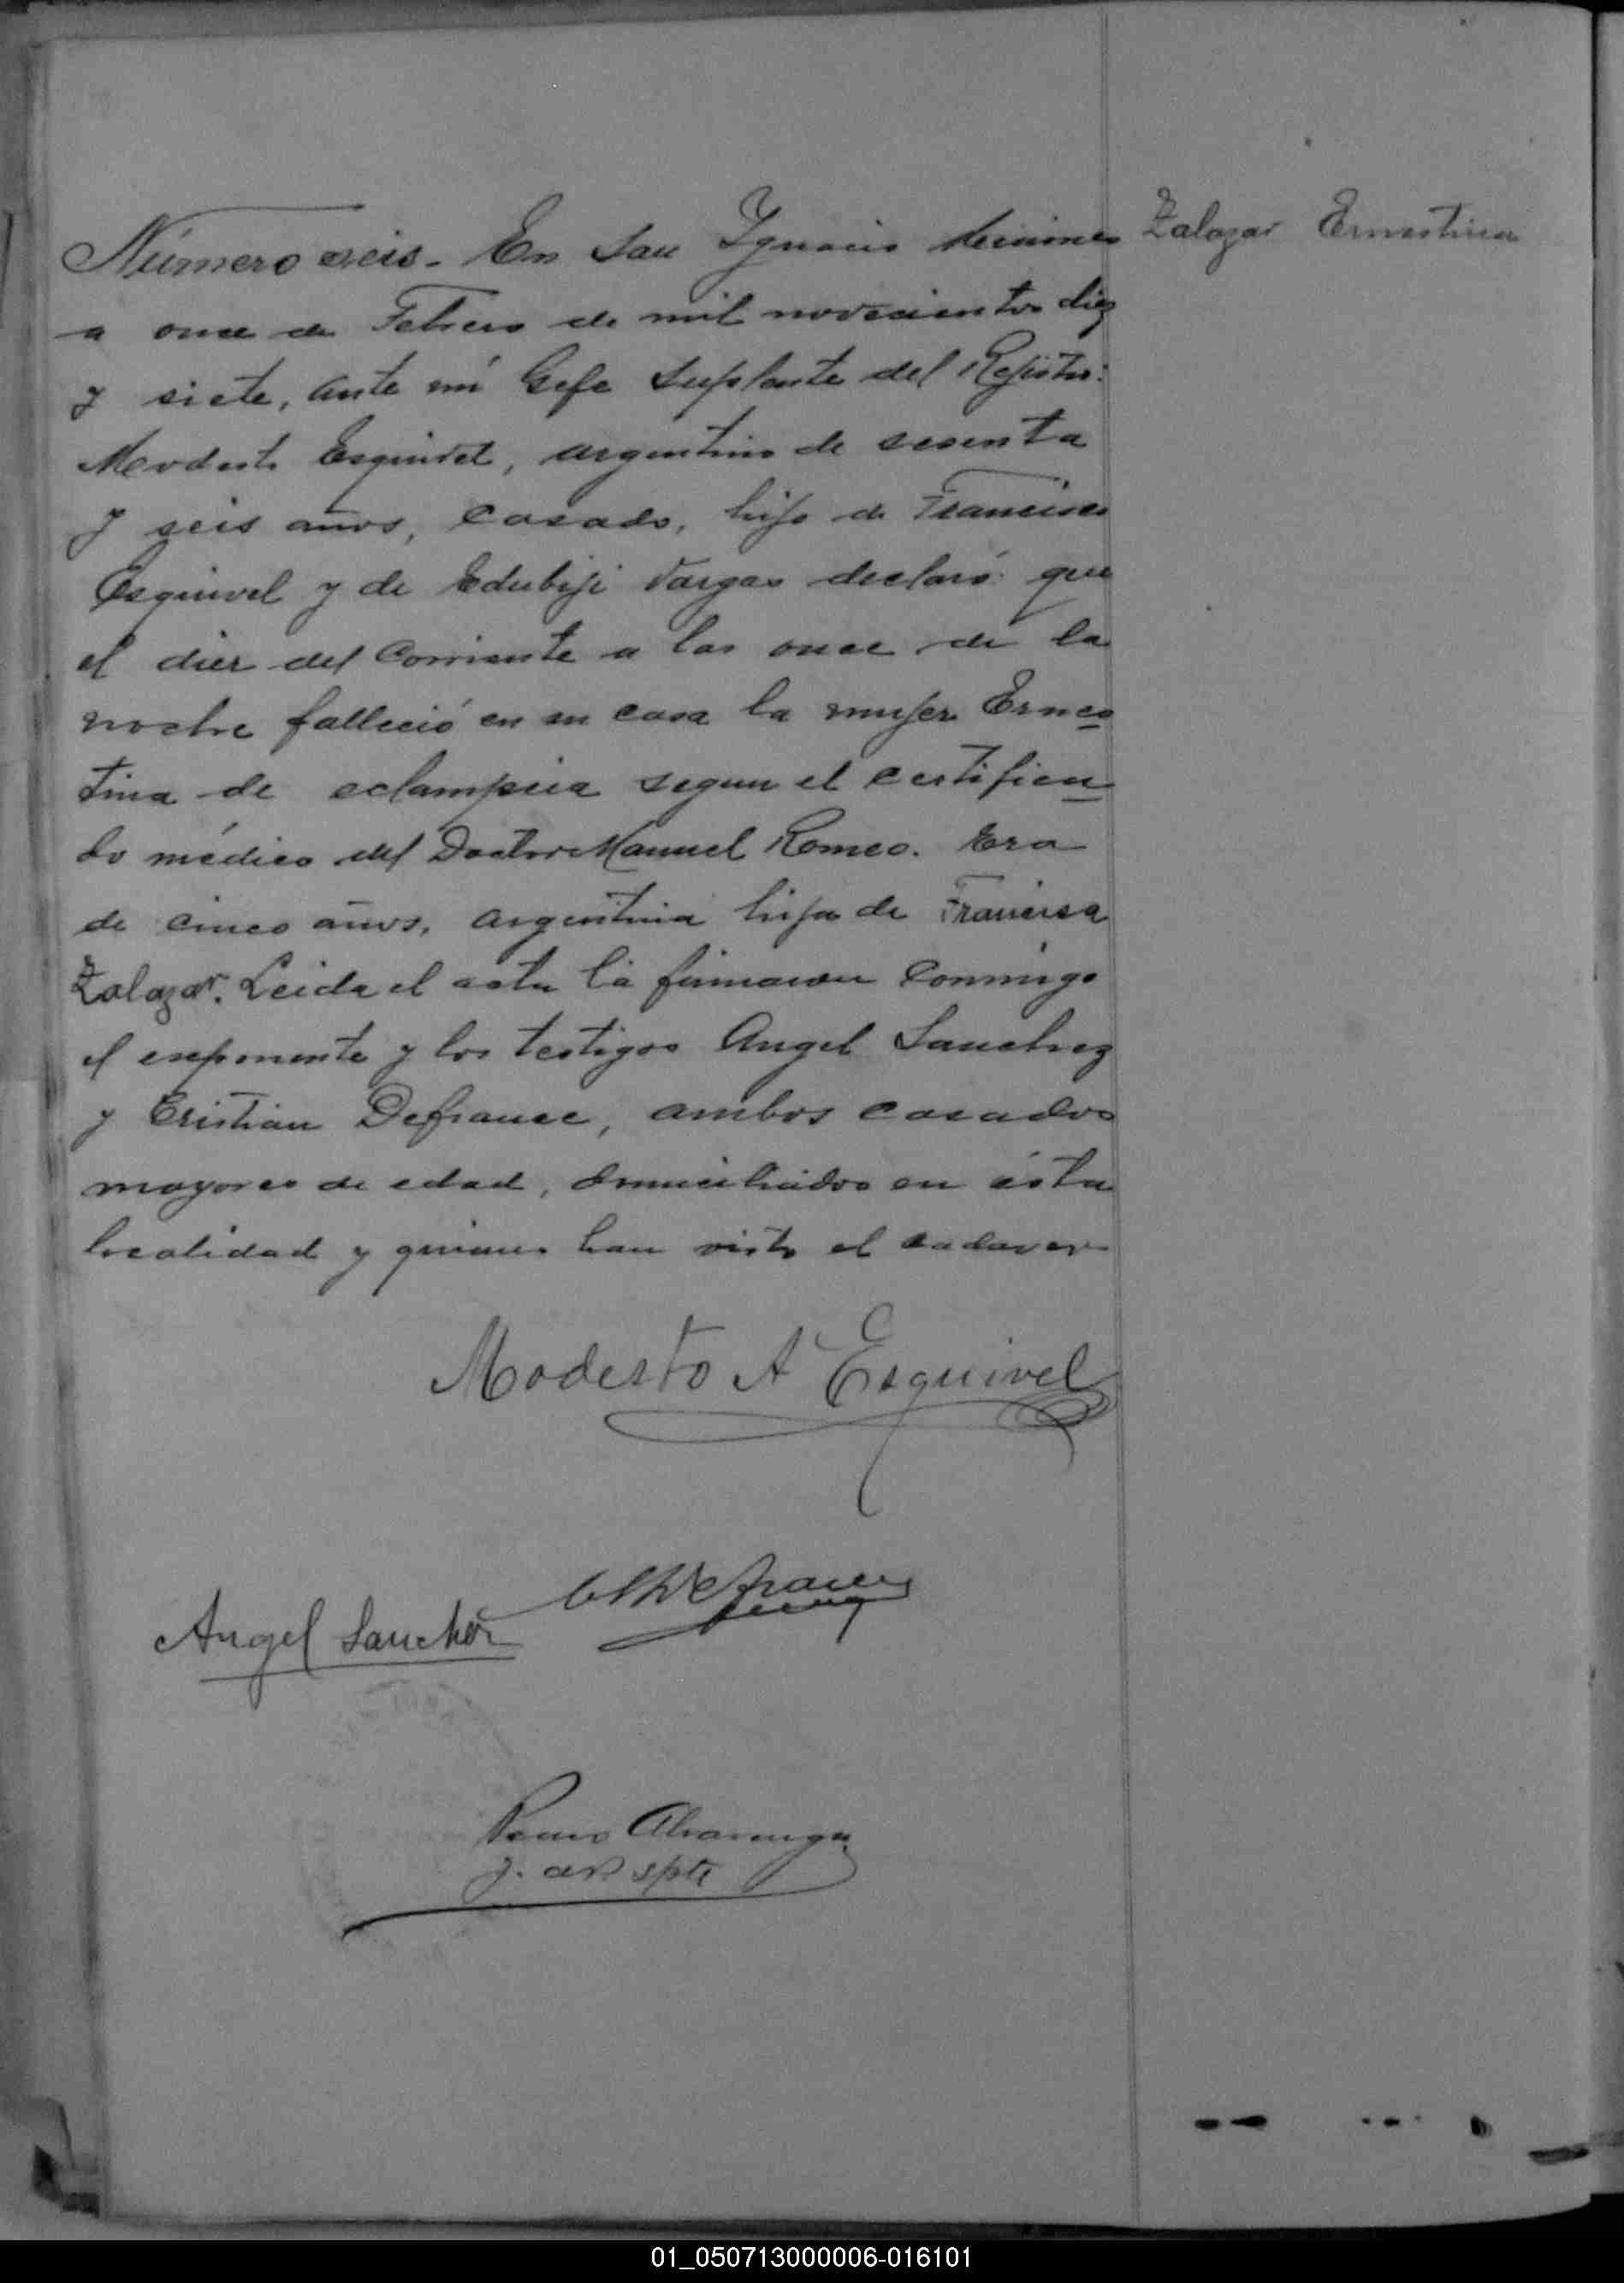 Número seis. En San Ygnacio Misiones
a once de Febrero de mil novecientos diez
y siete, ante mí Gefe Suplente del Registro:
Modesto Esquivel, argentino de sesenta
y seis años, casado, hijo de Francisco
Esquivel y de Edubiji Vargas declaró: que
el diez del corriente a las once de la
noche falleció en su casa la mujer Ernes
tina de eclampsia segun el certifica
do médico del Doctor Manuel Romeo. Era
de cinco años, argentina hija de Francisca
Zalazar. Leida el acta la firmaron conmigo
el exponente y los testigos Angel Sanchez
y Cristian Defrance, ambos casados
mayores de edad, domiciliados en ésta
localidad y quienes han visto el cadaver
Zalazar Ernestina
Modesto A Esquivel
Angel Sanchez
Alvarenga
spte
01_050713000006-016101